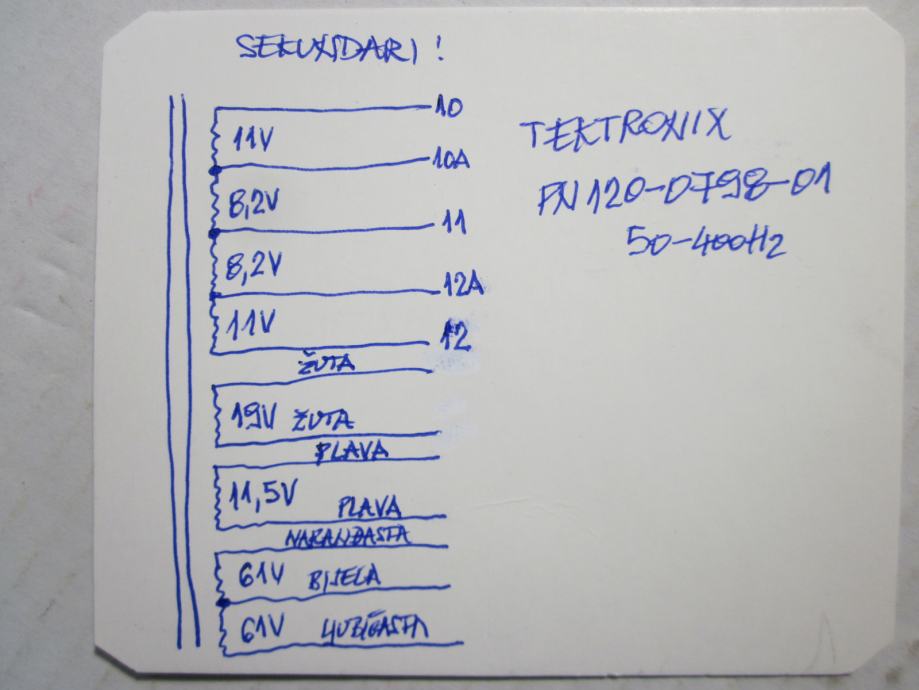 SEKUNDARI!
10
11V
10A
8,2V
11
8,2V
12A
11V
12
ŽUTA
19V ŽUTA
PLAVA
11,5V PLAVA
NARANDASTA
61V BIJELA
61V LJUBIČASTA
TEKTRONIX
PN 120-0798-01
50-400Hz